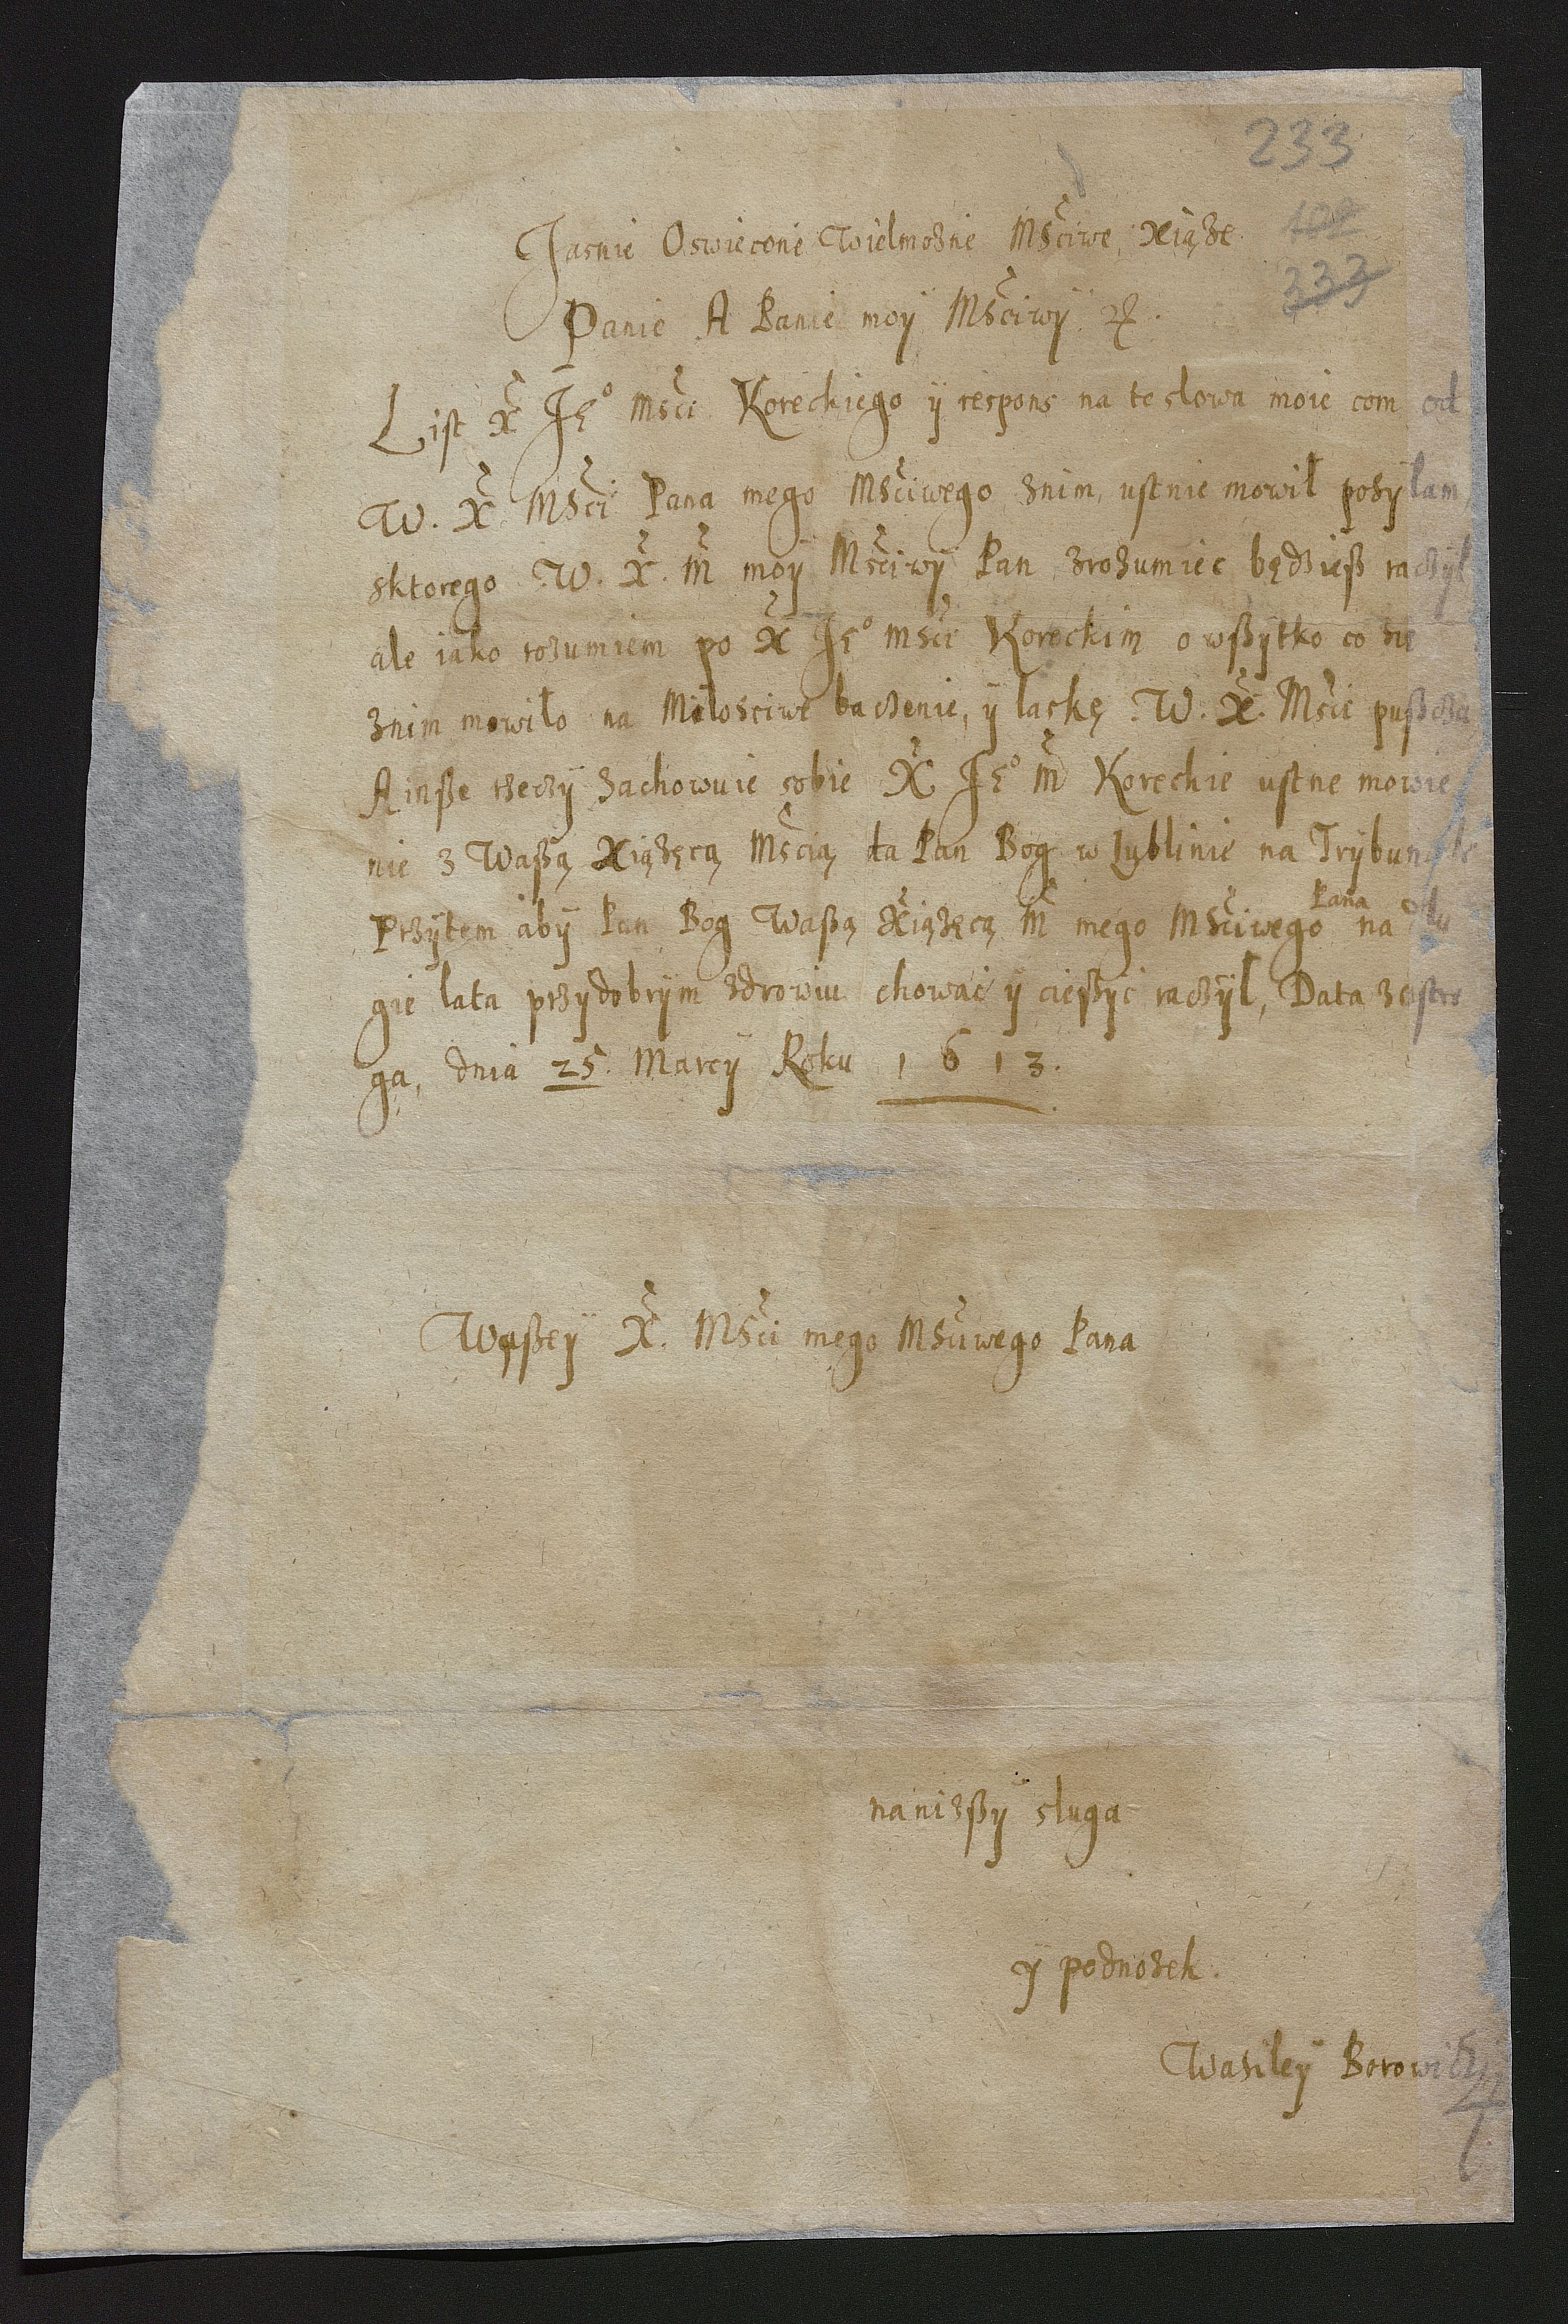 233
Jasnie Oswiecone Wielmozne Mści̇we Xiąże
102
333
Panie A Panie moÿ Mściwÿ etc.
List X Je° Mści Koreckiego ÿ respons na te slowa moie com od
W. X. Mści Pana mego Mściwego znim, ustnie mowił posÿłam
sktorego W. X. M moÿ Mściwÿ Pan zrozumiec będzieß raczÿł
ale iako rozumiem po X Je° Mści Koreckim o wßÿtko co sie
znim mowiło na Miłosciwe baczenie, ÿ łaskę W. X. Mści pußcza
A inße rzeczÿ zachowuie sobie X Je° M Koreckie ustne mowie
nie z Waßą Xiążęcą Mścią da Pan Bog w Lublinie na Trÿbunale
Przÿtem abÿ Pan Bog Waßą Xiążęcą M mego Mściwego Pana na dłu
gie lata przÿdobrÿm zdrowiu chowac ÿ cießÿc raczÿł, Data zostro
ga, dnia 25 Marcÿ Roku 1613.
Waßeÿ X. Mści mego Mściwego Pana
nanizßÿ sługa
ÿ podnozek.
Wasileÿ Borowi